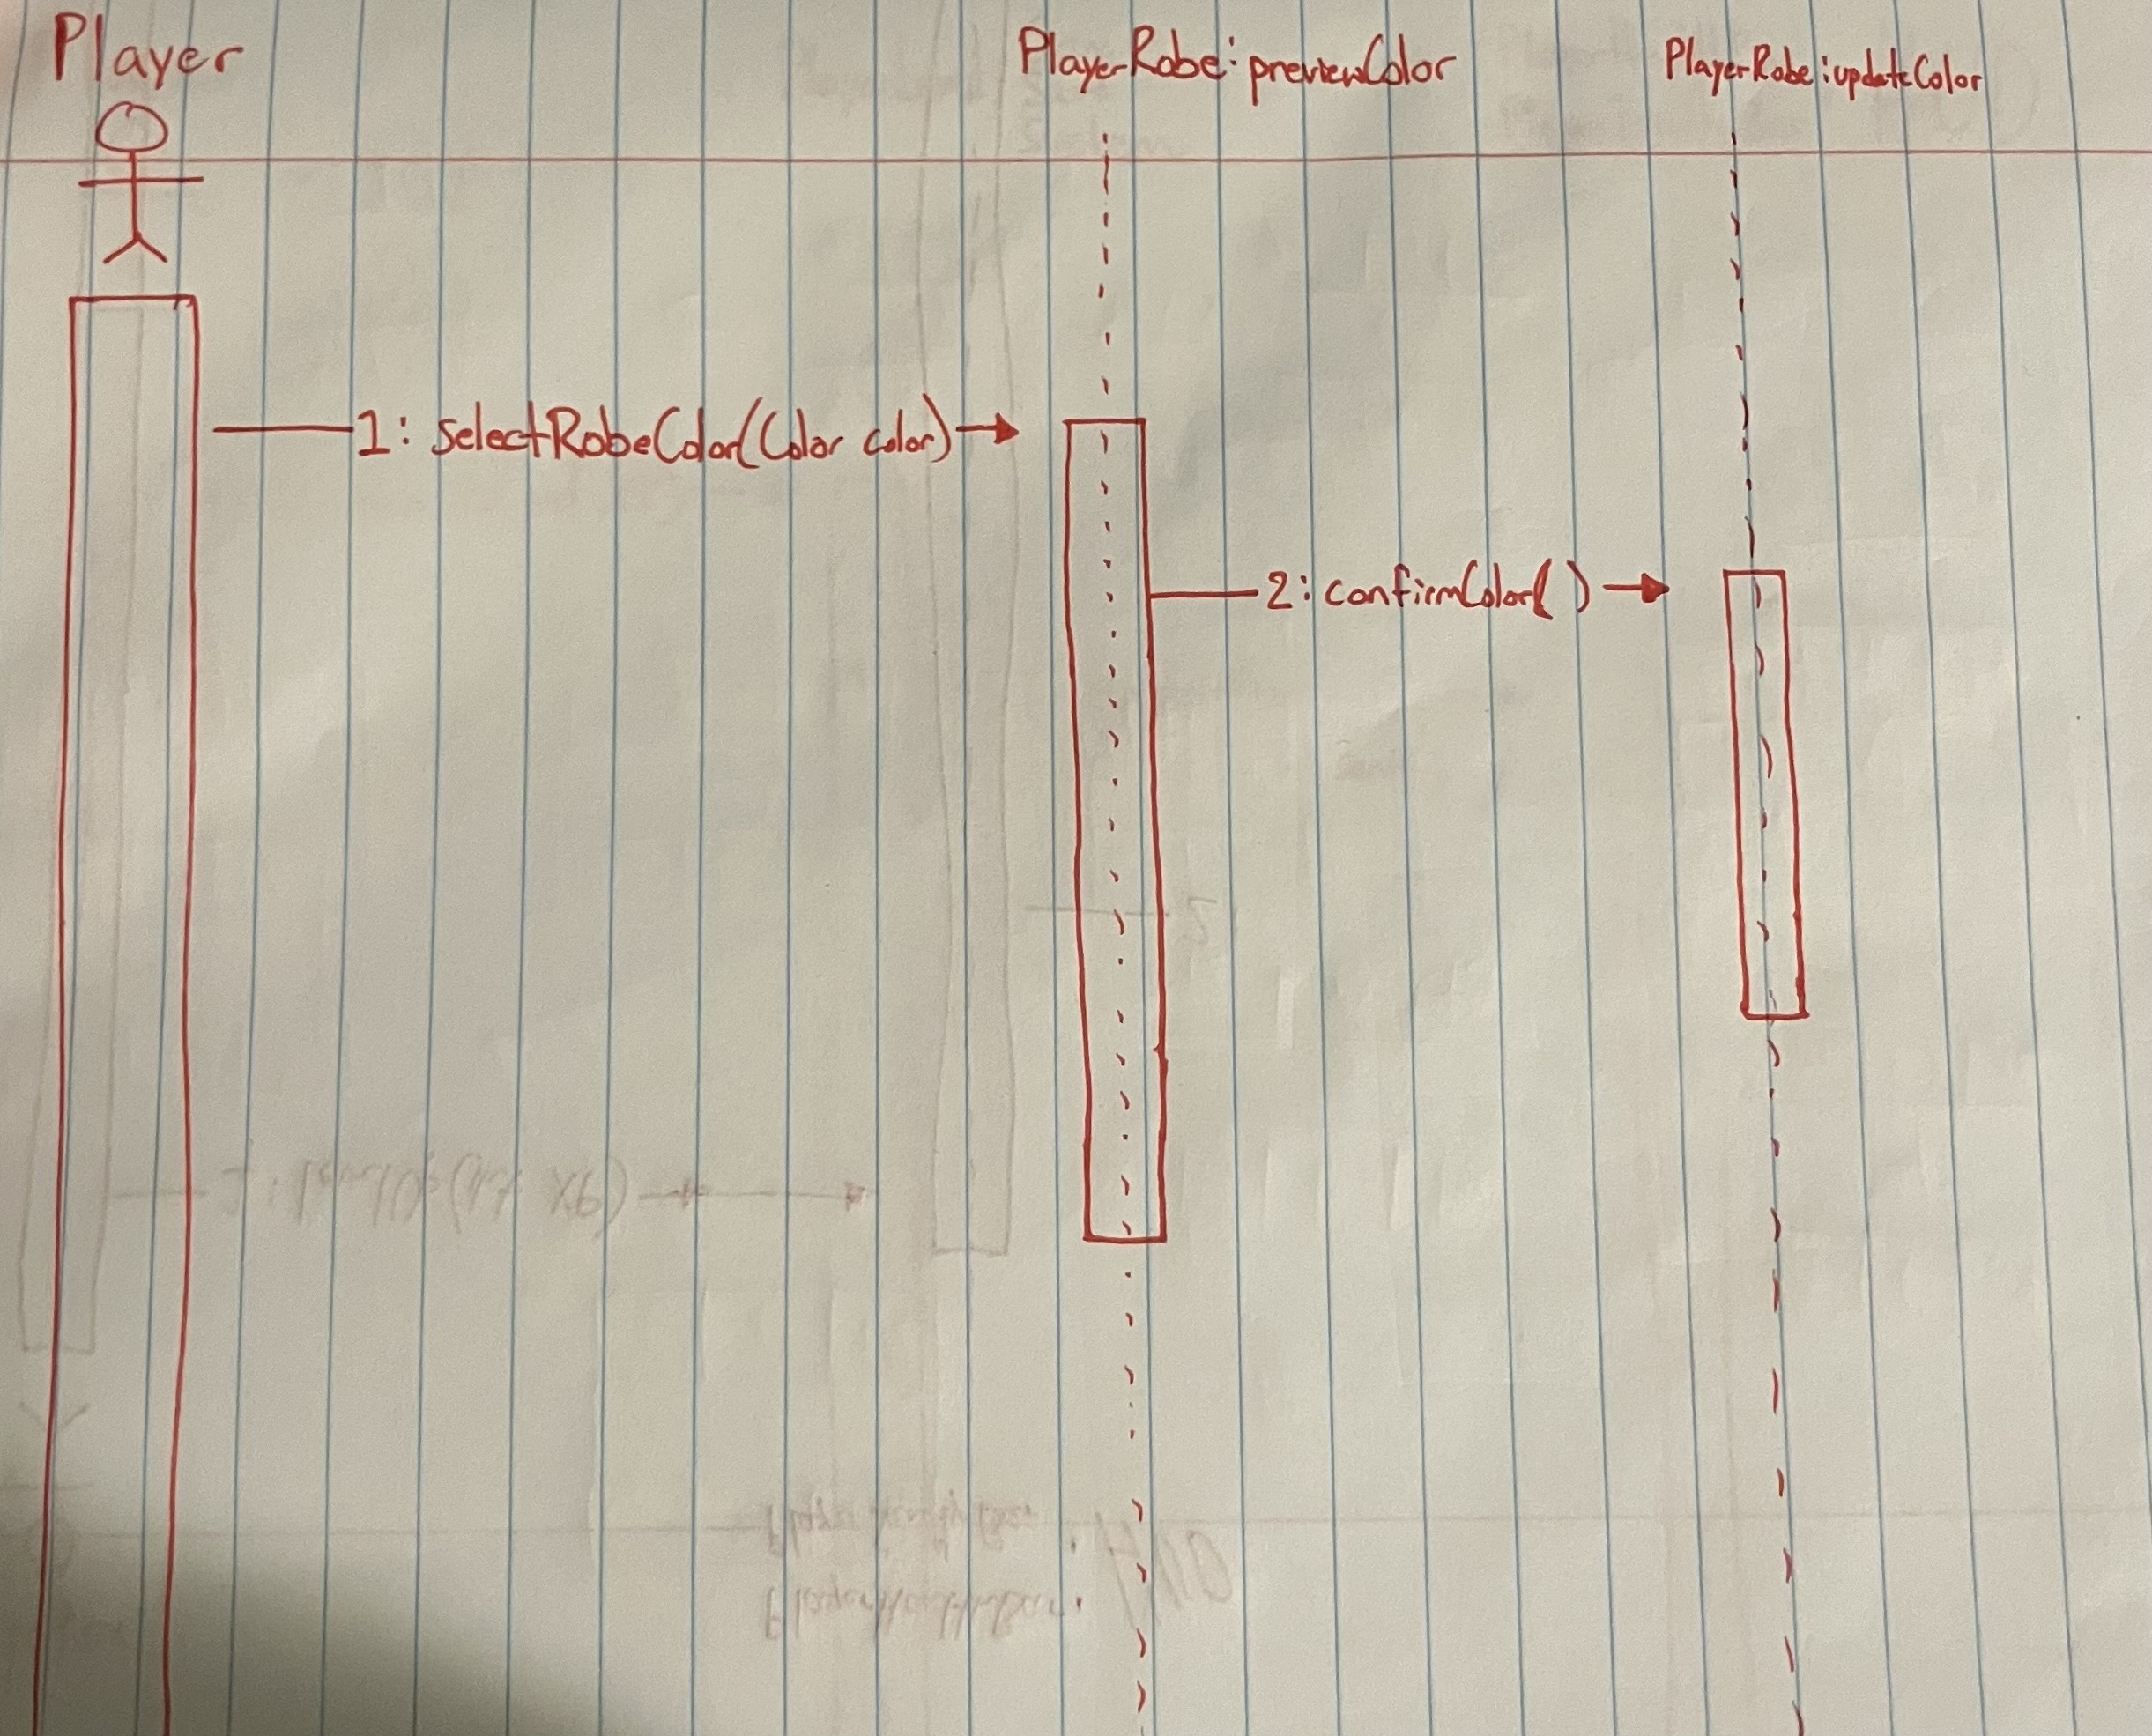 Player
PlayerRobe: previewColor
PlayerRobe: updateColor
1: selectRobeColor(Color color)
2: confirmColor( )